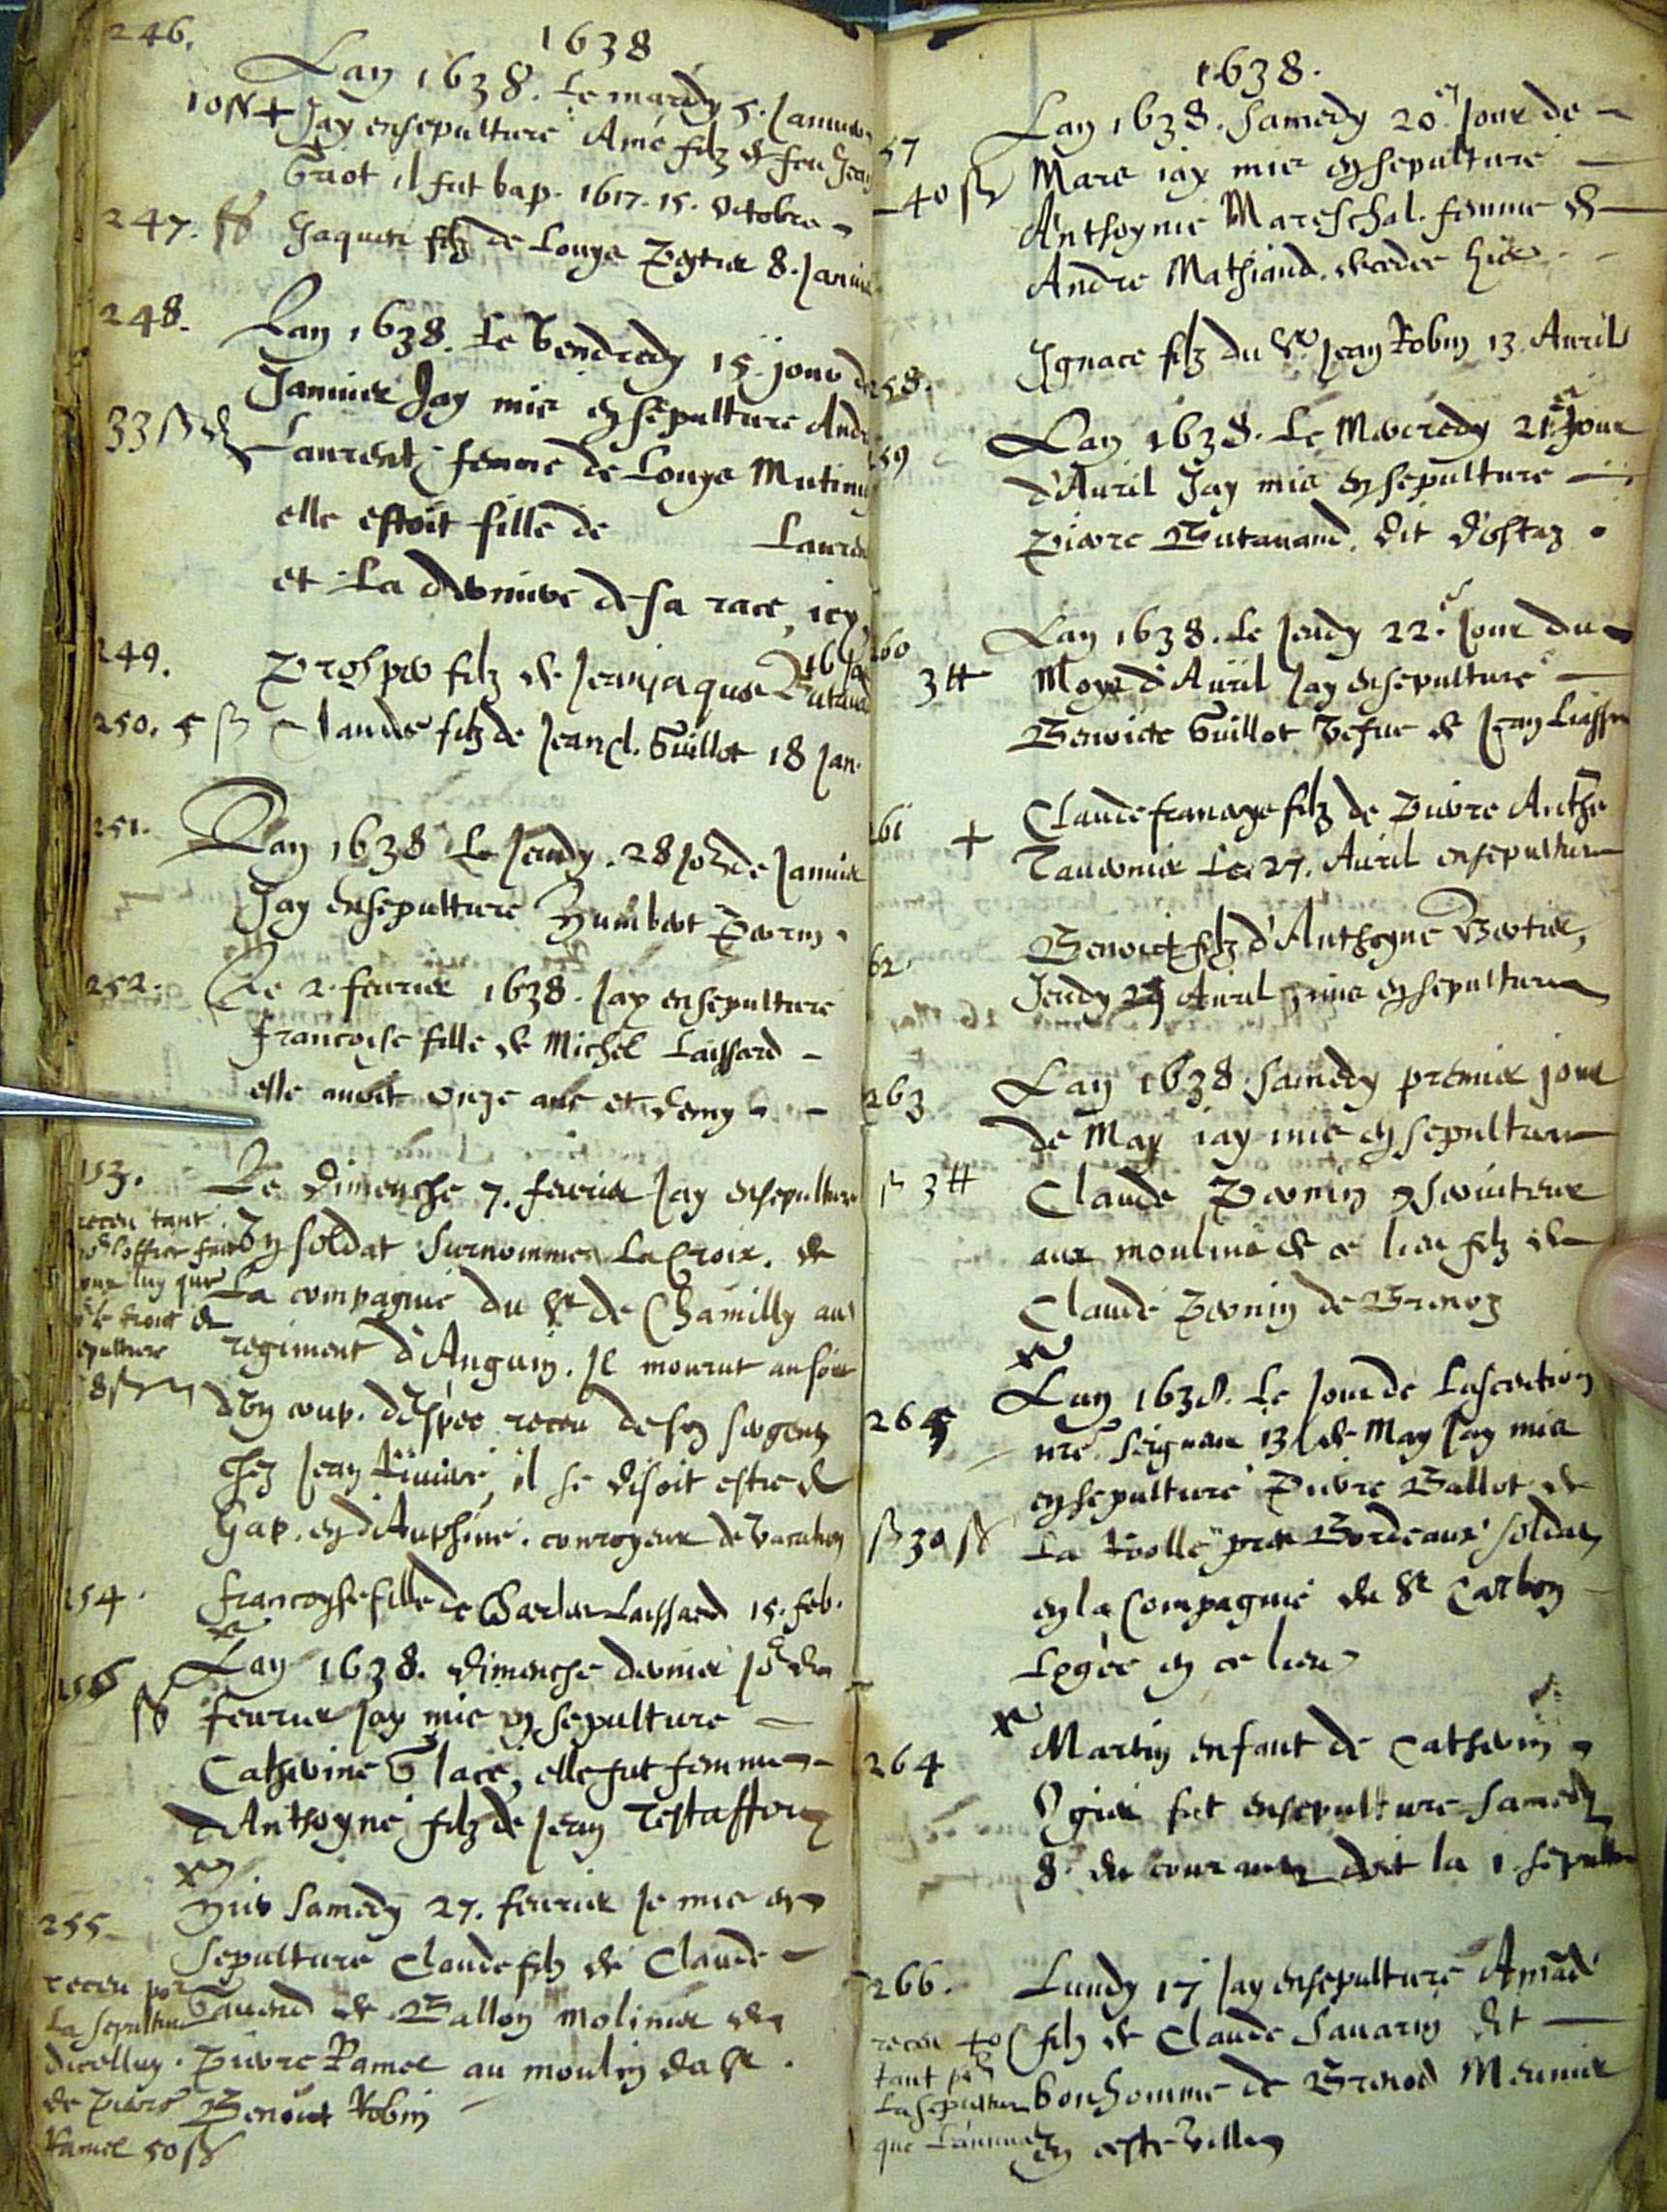 246.
1638
Lan 1638. Le mardy 5. Januier
10 ss + Jay ensepulturé Amé filz de feu Jean
Guot il fut bap. 1617. 15. Octobre
247. Jaques filz de Louys 8. Januie
248. Lan 1638. Le Vendredy 15. jour de
Januier Jay mis en sepulture Andr
33 Laurent femme de Louys Mutin
elle estoit fille de Laure
et La derniere de sa race, icy
249. Prosper filz de Jean jaques 16 Ja
250. 5 Claude filz de Jean cl. Guillot 18 Jan.
251. Lan 1638 Le Jeudy. 28 Jor de Januier
Jay ensepulturé Humbert Perrin
252. Le 2. feurier 1638. Jay ensepulturé
francoise fille de Michel Laissard
elle auoit onze ans et demy
153. Le Dimenche 7. feurier Jay ensepulturé
receu tant
Vn soldat Surnommé La Croix. de
La compagnie du Sr de Chamilly au
sepulture
regiment d'Anguin. Il mourut au soir
dVn coup. despée receu de son sergent
chez Jean il se disoit estre de
Gap. en dAuphiné. conroyeur de Vacation
254. francoyse fille de Charles Laissard 15. feb.
Lan 1638. dimenche dernier Jor de
feurier Jay mis en sepulture
Catherine Glace, elle fut femme
d'Anthoyne filz de Jean
Hier Samedy 27. feurier Je mis en
255
sepulture Claude filz de Claude
receu por
La sepulture
de Ballon Molinier de
dicelluy. Pierre Ramel au moulin du Sr.
de Pierre Benoit Robin
Ramel 50 ss
1638.
57 Lan 1638. Samedy 20.e Jour de
40 Mars iay mis en sepulture
Anthoynie Mareschal. femme de
Andre Mathiand. decedee hier
258. Ignace filz du Sr. Jean Robin 13. Auril
259 Lan 1638. Le Mecredy 21.e Jour
d'Auril Jay mis en sepulture
Pierre Butauand. dit d'hostaz
260 Lan 1638. Le Jeudy 22.e Jour du
3 tt Moys d'Auril Jay ensepulturé
Benoite Guillot Vefue de Jean
261 + Claude francoys filz de Pierre Anthe
Tauernier Le 27. Auril ensepulturé
62. Benoict filz d'Anthoyne Bertier,
Jeudy 29 Auril mis en sepulture
263 Lan 1638. Samedy premier jour
de May iay mis en sepulture
3 tt Claude Pernin seruiteur
aux moulins de ce lieu filz de
Claude Pernin de Brenoz
265 Lan 1638. Le Jour de Lascention
nre Seigneur 13 de May Jay mis
en sepulture Pierre Ballot de
30 La Reolle pres Bordeaux soldat
en la Compagnie du Sr Carbon
Logée en ce lieu
264 Martin enfant de Catherin
Ogier fut ensepulturé Samedy
8. du courant doit la i. sepulture
266. Lundy 17 Jay ensepulturé Amad
receu filz de Claude Sauarin dit
tant por
La sepulture bonhomme de Brenod Meunier
que en ceste Ville